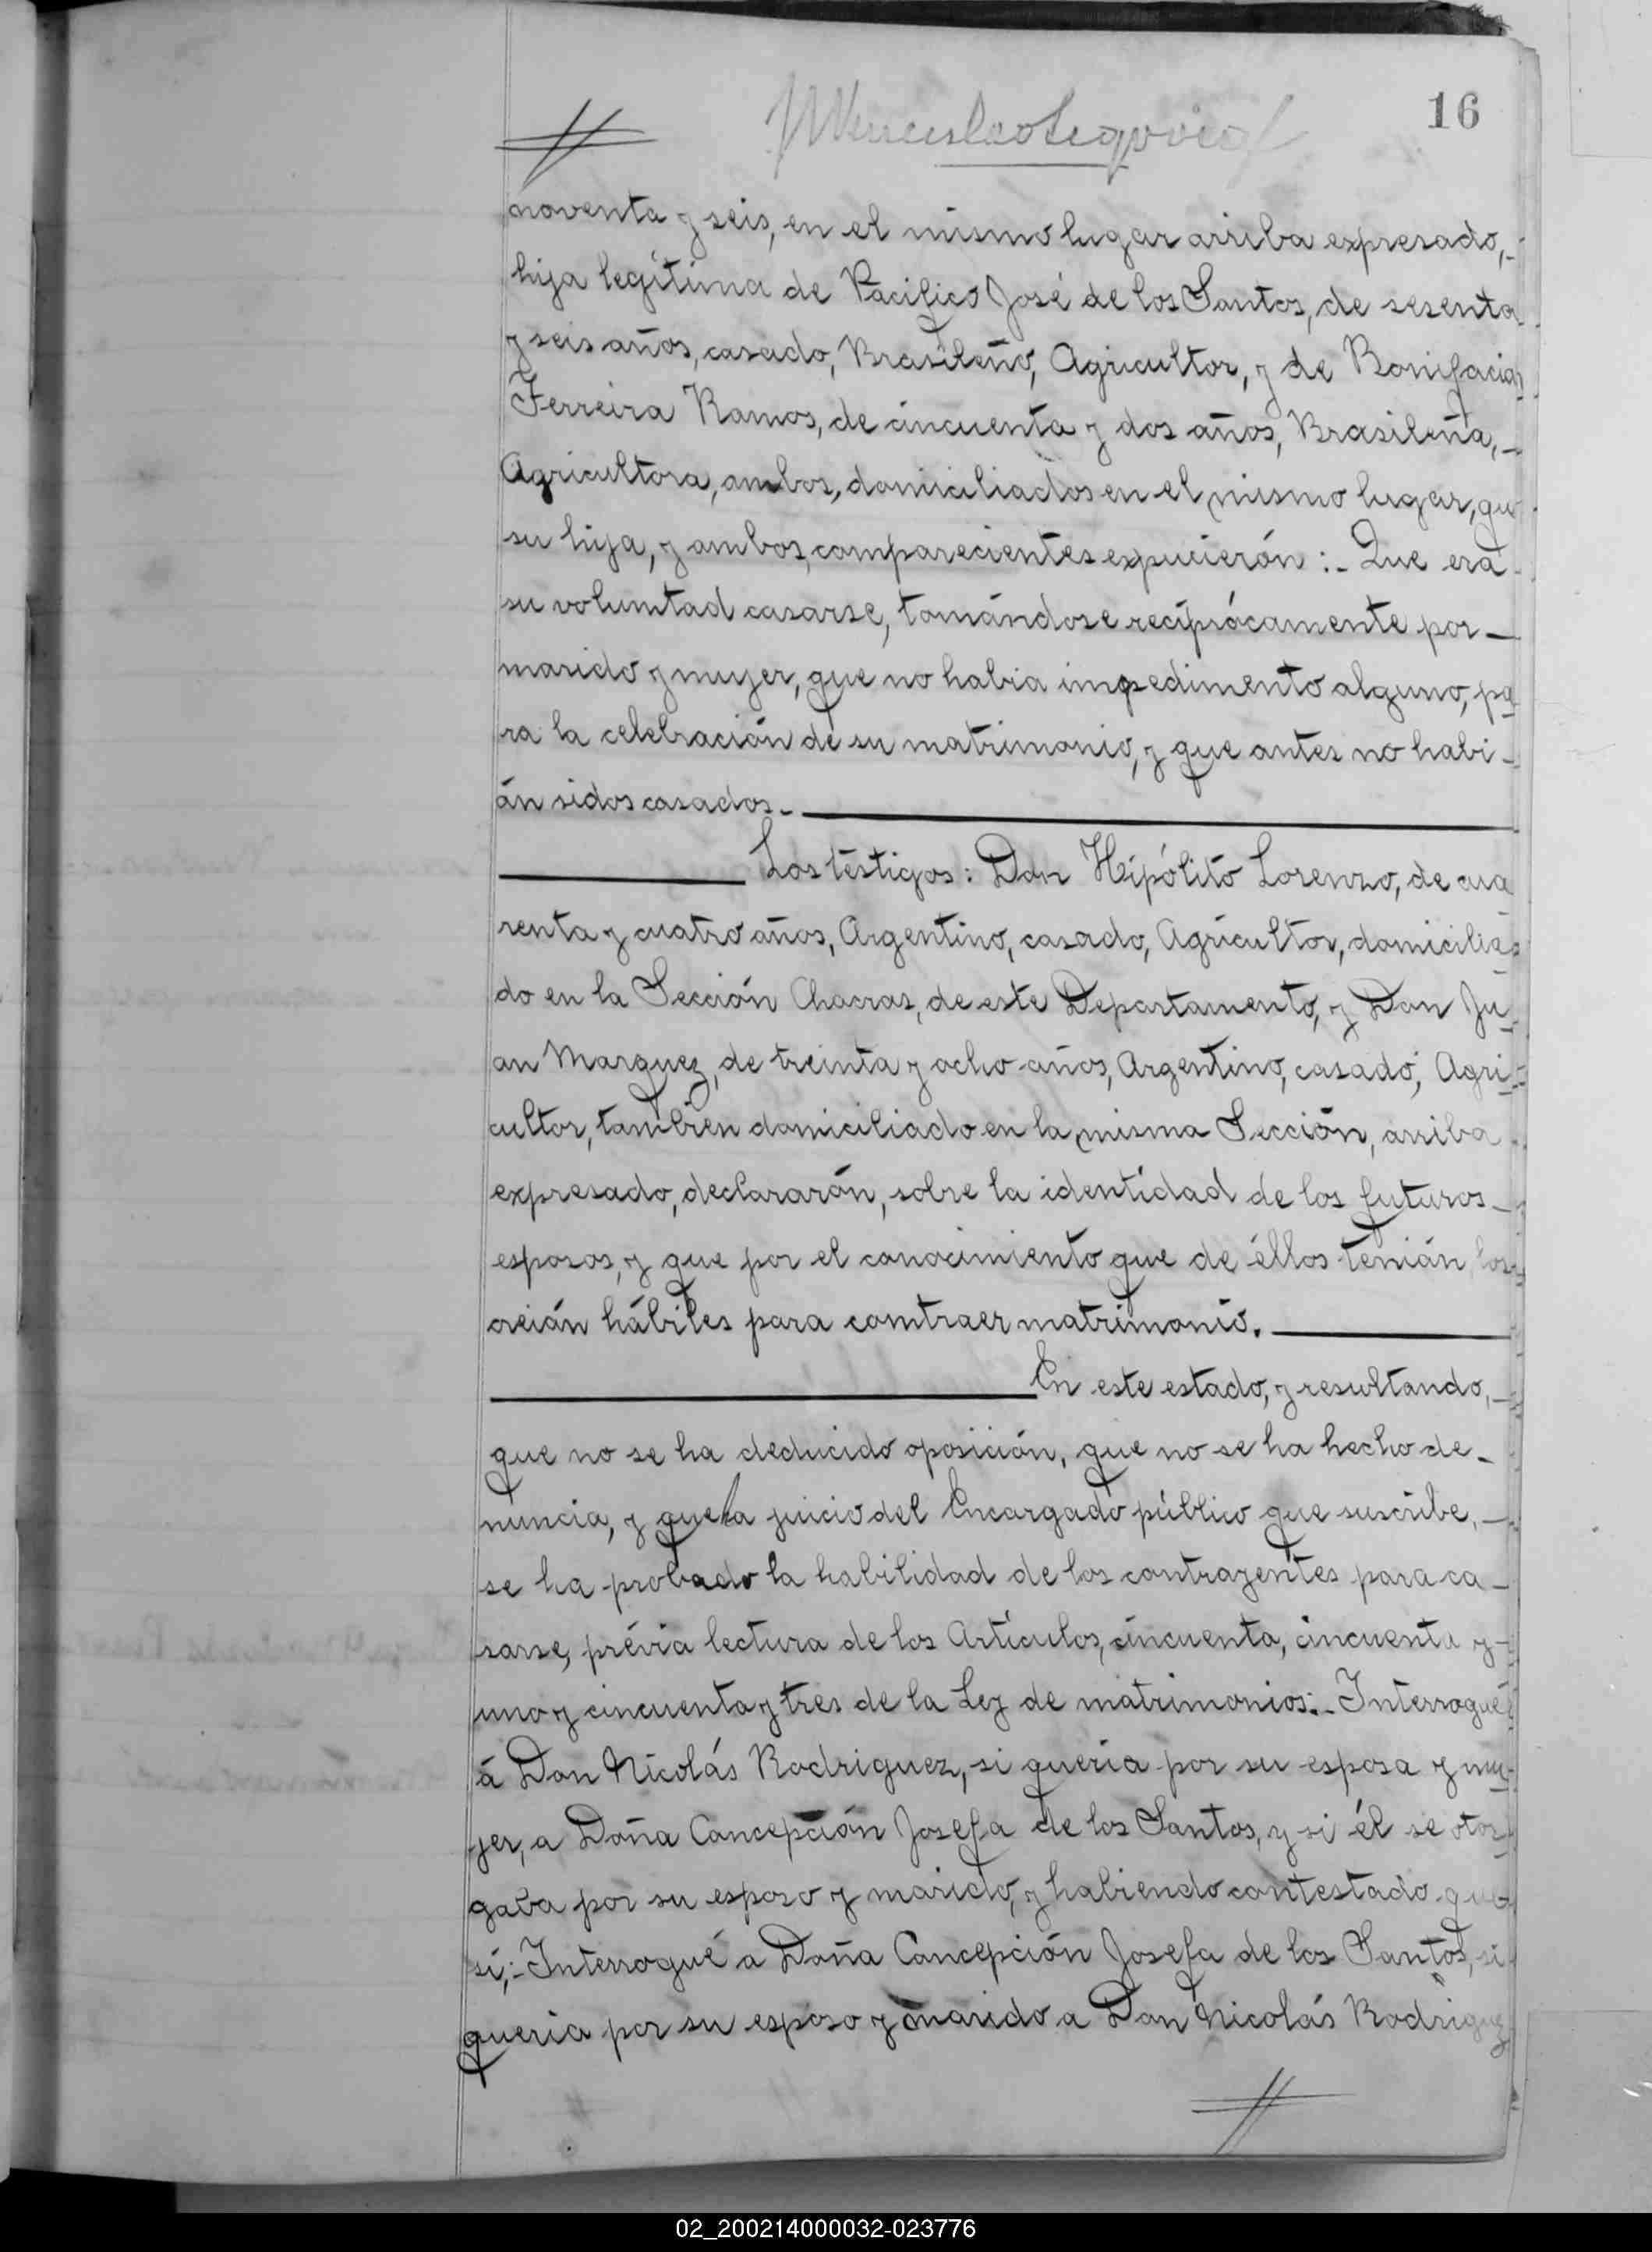 16
noventa y seis, en el mismo lugar arriba expresado,-
hija legítima de Pacífico José de los Santos, de sesenta
y seis años, casado, Brasileño, Agricultor, y de Bonifacia
Ferreira Ramos, de cincuenta y dos años, Brasileña,-
Agricultora, ambos, domiciliados en el mismo lugar, que
su hija, y ambos, comparecientes expucierón:- Que era
su voluntad casarse, tomándose recíprócamente por-
marido y mujer, que no habia impedimento alguno, pa
ra la celebración de su matrimonio, y que antes no habi-
án sidos casados.-
Los téstigos: Don Hipólito Lorenzo, de cua
renta y cuatro años, Argentino, casado, Agricultor, domicilia-
do en la Sección Chacras, de este Departamento, y Don Ju-
an Marquez, de treinta y ocho años, Argentino, casado, Agri-
cultor, tambien domiciliado en la misma Sección, arriba
expresado, declararón, sobre la identidad de los futuros-
esposos, y que por el conocimiento que de éllos tenián, los
creián hábiles para comtraer matrimonio.
En este estado, y resultando,-
que no se ha deducido oposición, que no se ha hecho de-
nuncia, y que a juicio del Encargado público que suscribe,-
se ha probado la habilidad de los contrayentes para ca-
sarse, prévia lectura de los Artículos, cincuenta, cincuenta y-
uno y cincuenta y tres de la Ley de matrimonios:- Interrogué
á Don Nicolás Rodriguez, si queria por su esposa y mu-
jer, a Doña Concepción Josefa de los Santos, y si él se otor-
gaba por su esposo y marido, y habiendo contestado que
sí,:- Interrogué a Doña Concepción Josefa de los Santos, si
queria por su esposo y marido a Don Nicolás Rodriguez
02_200214000032-023776